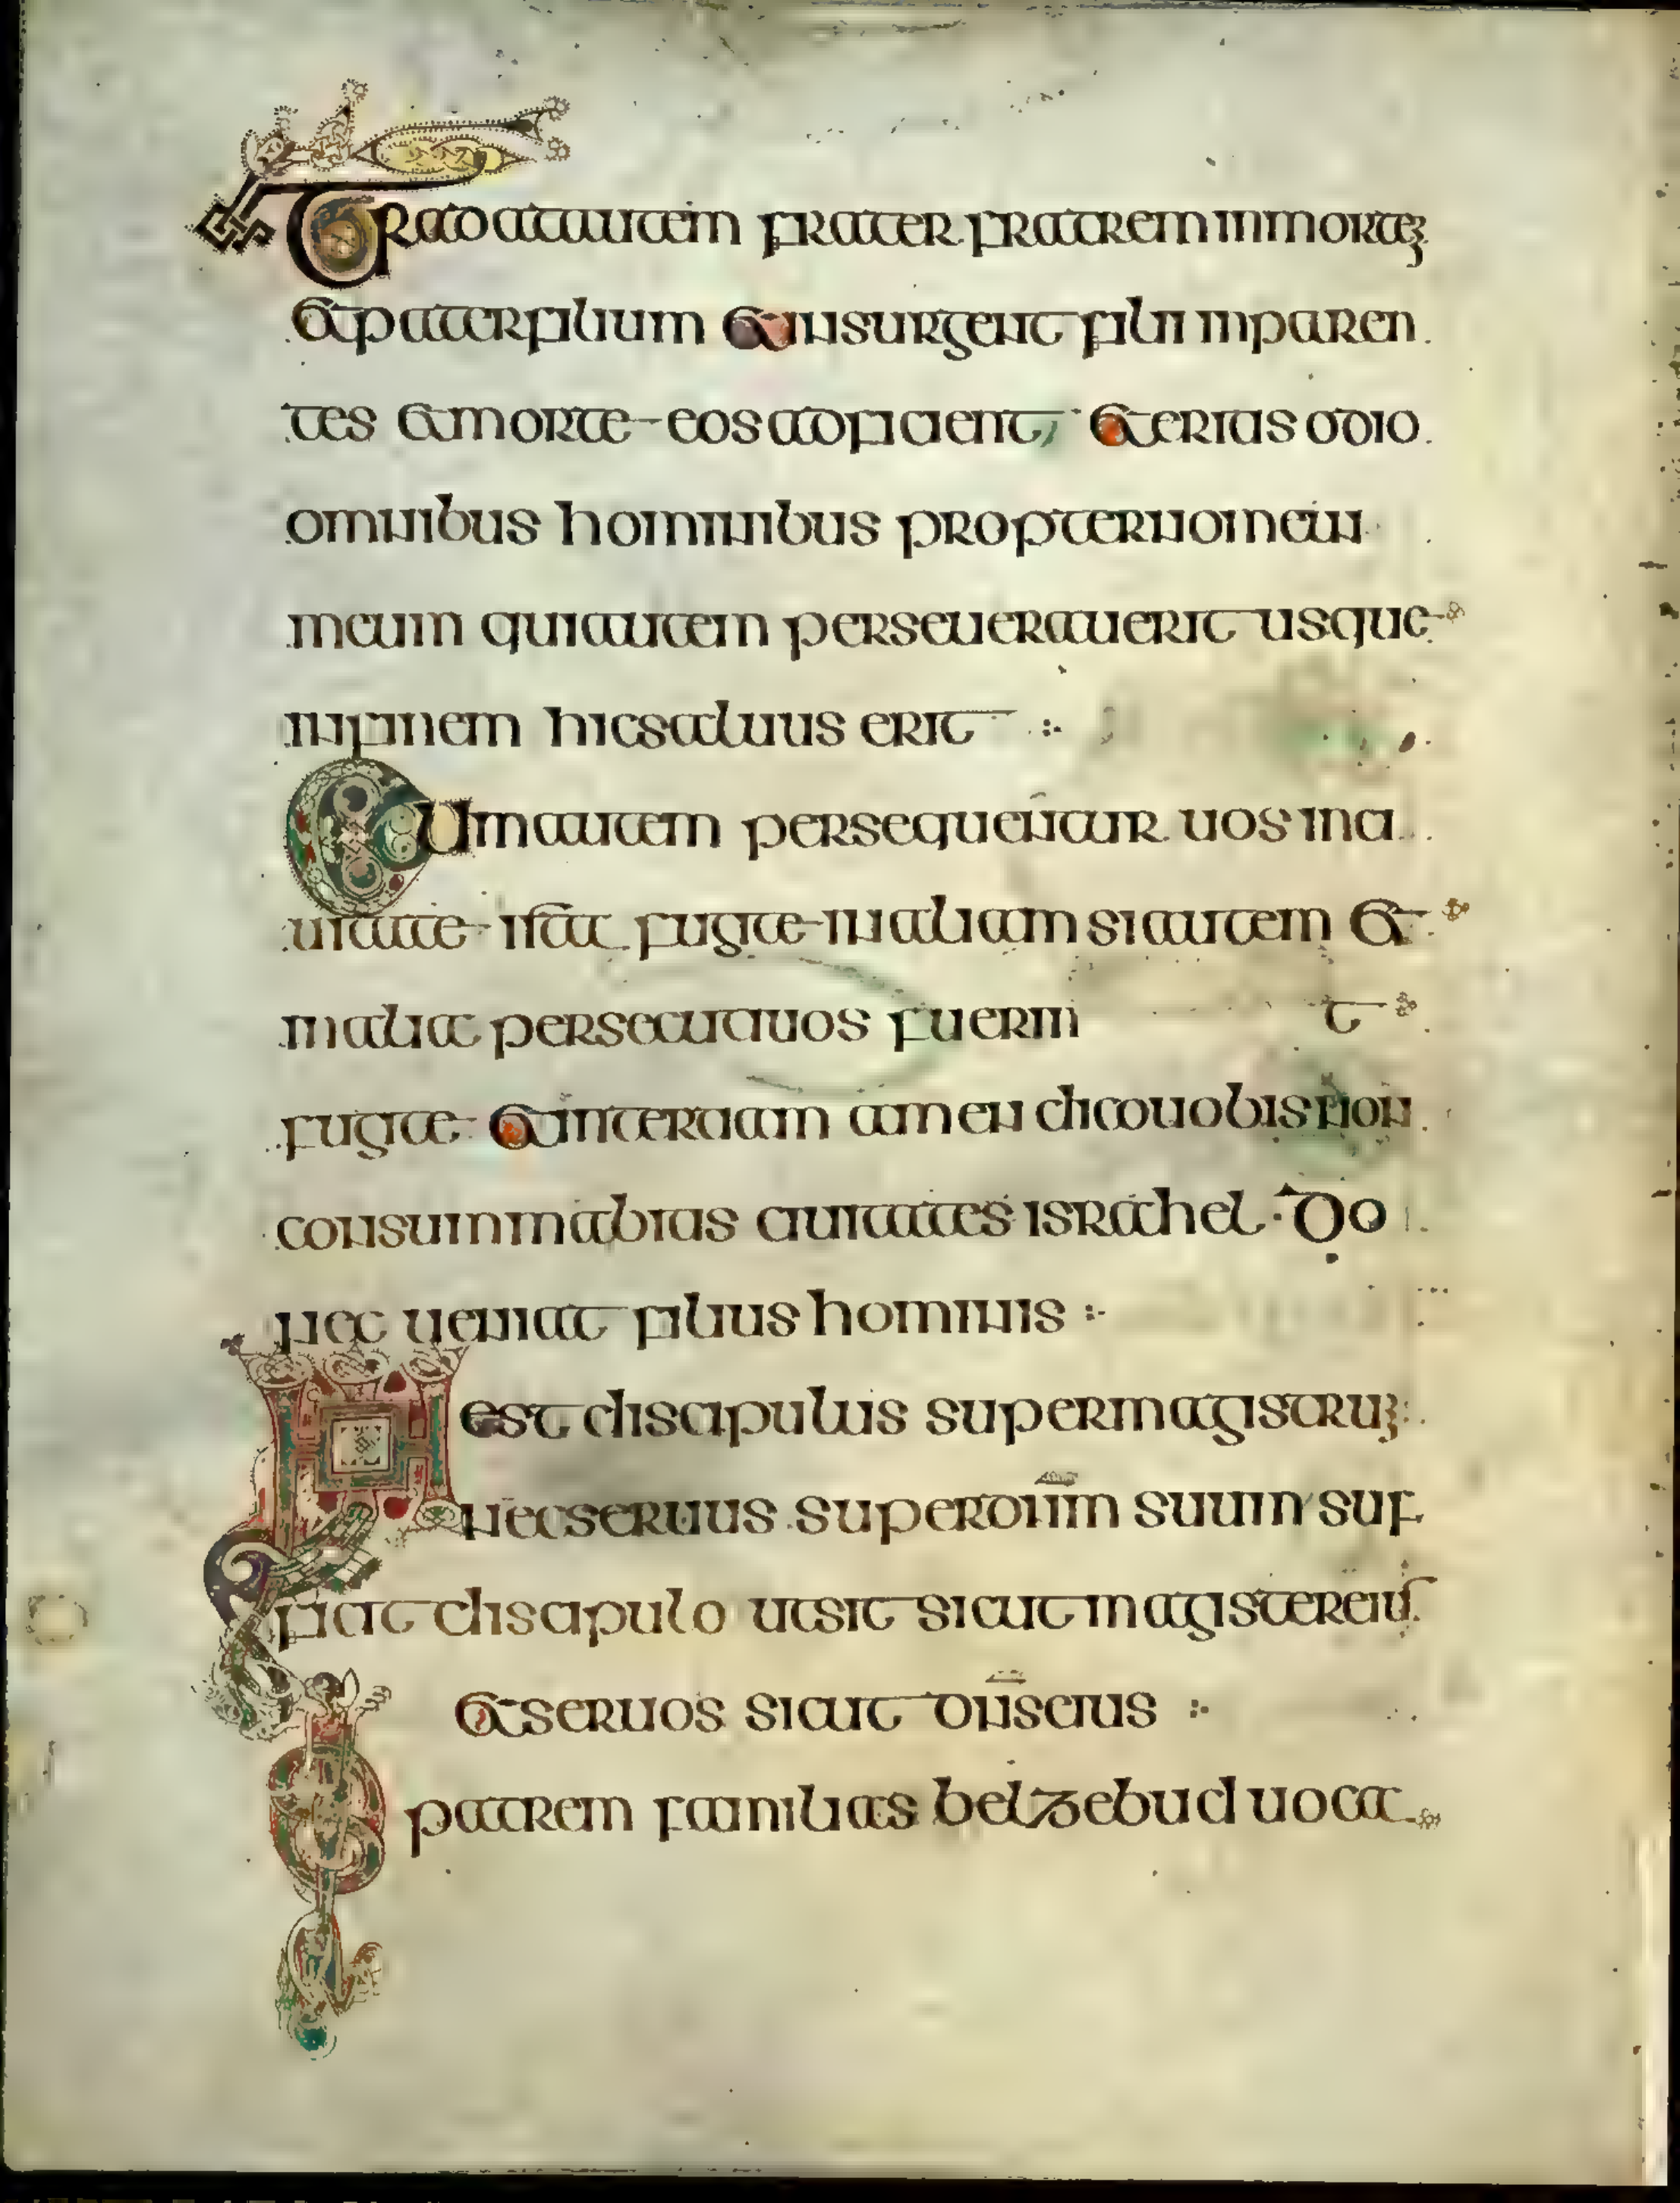 Tradat autem frater fratrem in morteʒ
et pater filium et insurgent filii in paren
tes et morte eos adficient, et eritis odio
omnibus hominibus propter nomen
meum qui autem perseueraueritusque
in finem hic saluus erit
Cum autem persequentur uos in ci
uitate ista fugite in aliam si autem et
in alia persecuti uos fuerint
fugite et in tertiam amen dico uobis non
consummabitis ciuitates israhel do
nec ueniat filius hominis
N est discipulus super magistruʒ
nec seruus super dn̄m suum suf
ficit discipulo ut sit sicut magister eius
et seruos sicut dn̄s eius
Si patrem familias belzebud uoca